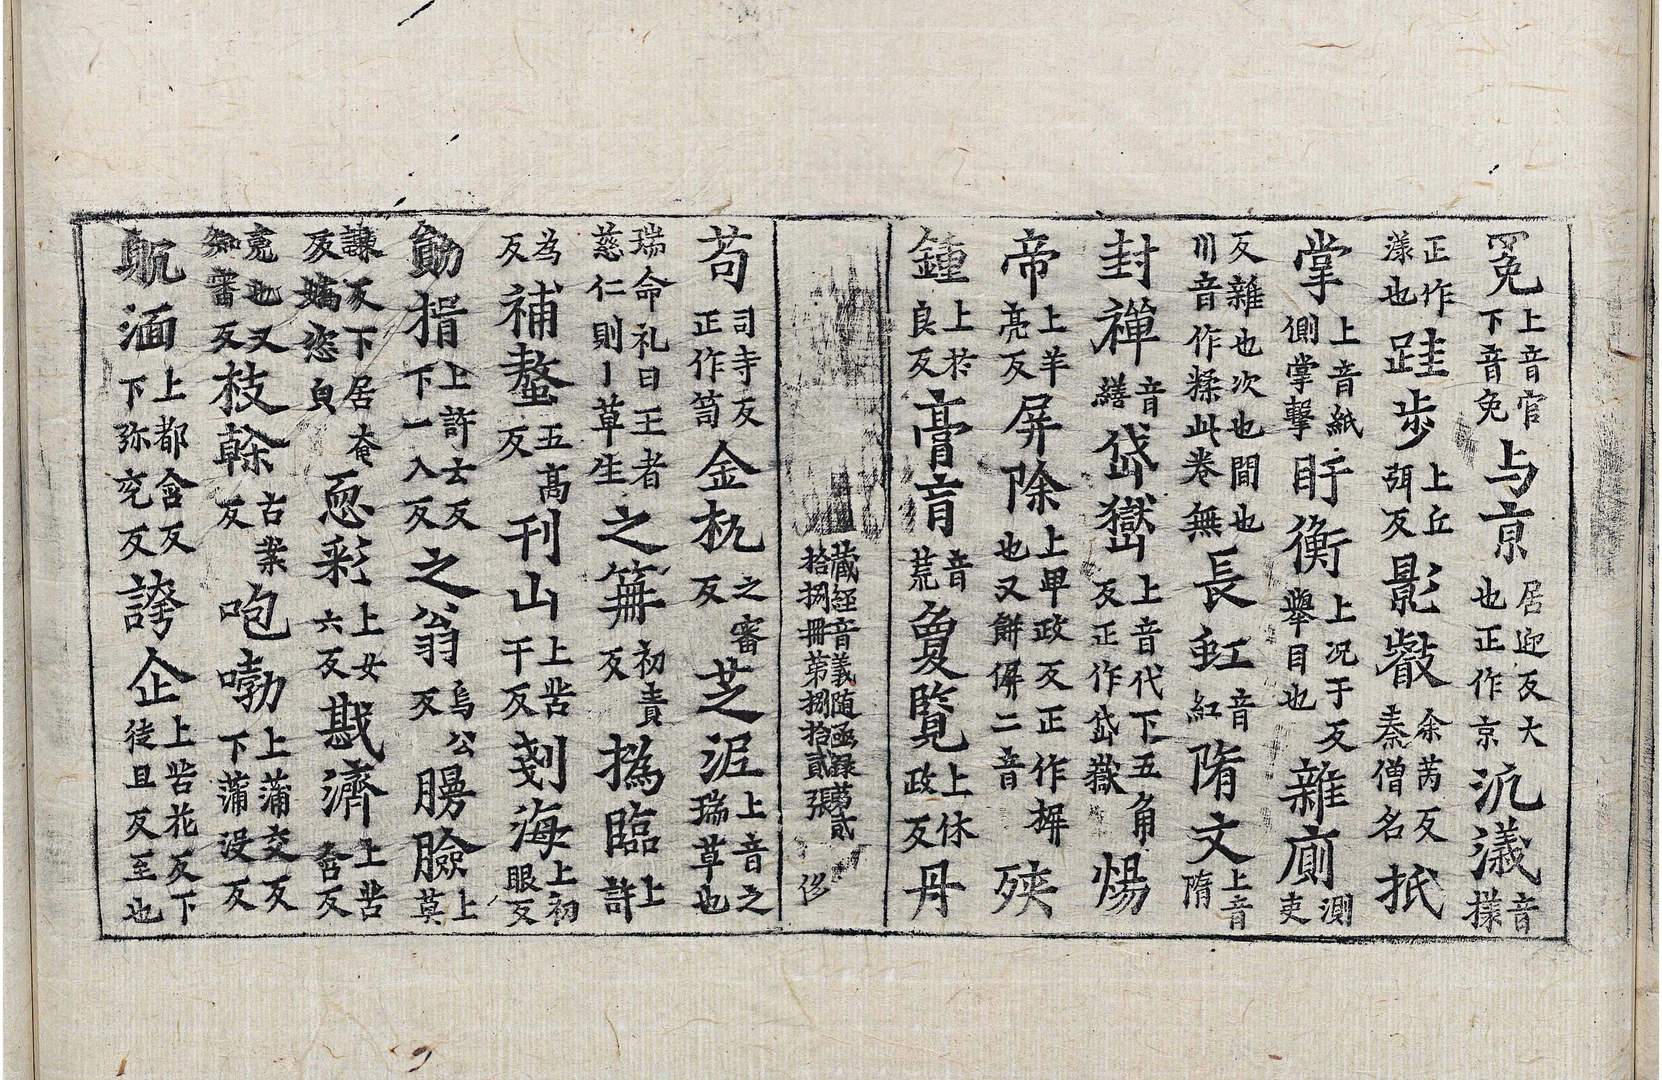 冕上音官下音免与亰居迎反大也正作京沠漾音㨾
正作漾也跬步上丘弭反影叡余芮反秦僧名抵
掌上音紙側掌撃盱衡上况于反舉目也雜廁測吏
反雜也次也間也川音作糅此卷無長虹音紅隋文上音隋
封禪音繕岱嶽上音代下五角反正作岱嶽惕
帝上羊亮反屏除上畢政反正作摒也又餅偋二音殃
鍾上於良反膏肓音荒敻覽上休政反丹
藏經音義随函録第貳
拾捌冊第捌拾貳張 侈
苟司寺反正作笥金杋之審反芝泥上音之瑞草也
瑞命礼曰王者慈仁則丨草生之筴初責反撝臨上許
為反補鼇五高反刊山上苦干反剗海上初眼反
勛揖上許云反下一入反之翁烏公反臉上莫
謙反下居奄反嬌恣皃恧彩上女六反戡濟上苦含反
寬也又知審反枝幹古案反咆勃上蒲交反下蒲没反
躭湎上都含反下弥兖反誇企上苦花反下徒且反至也